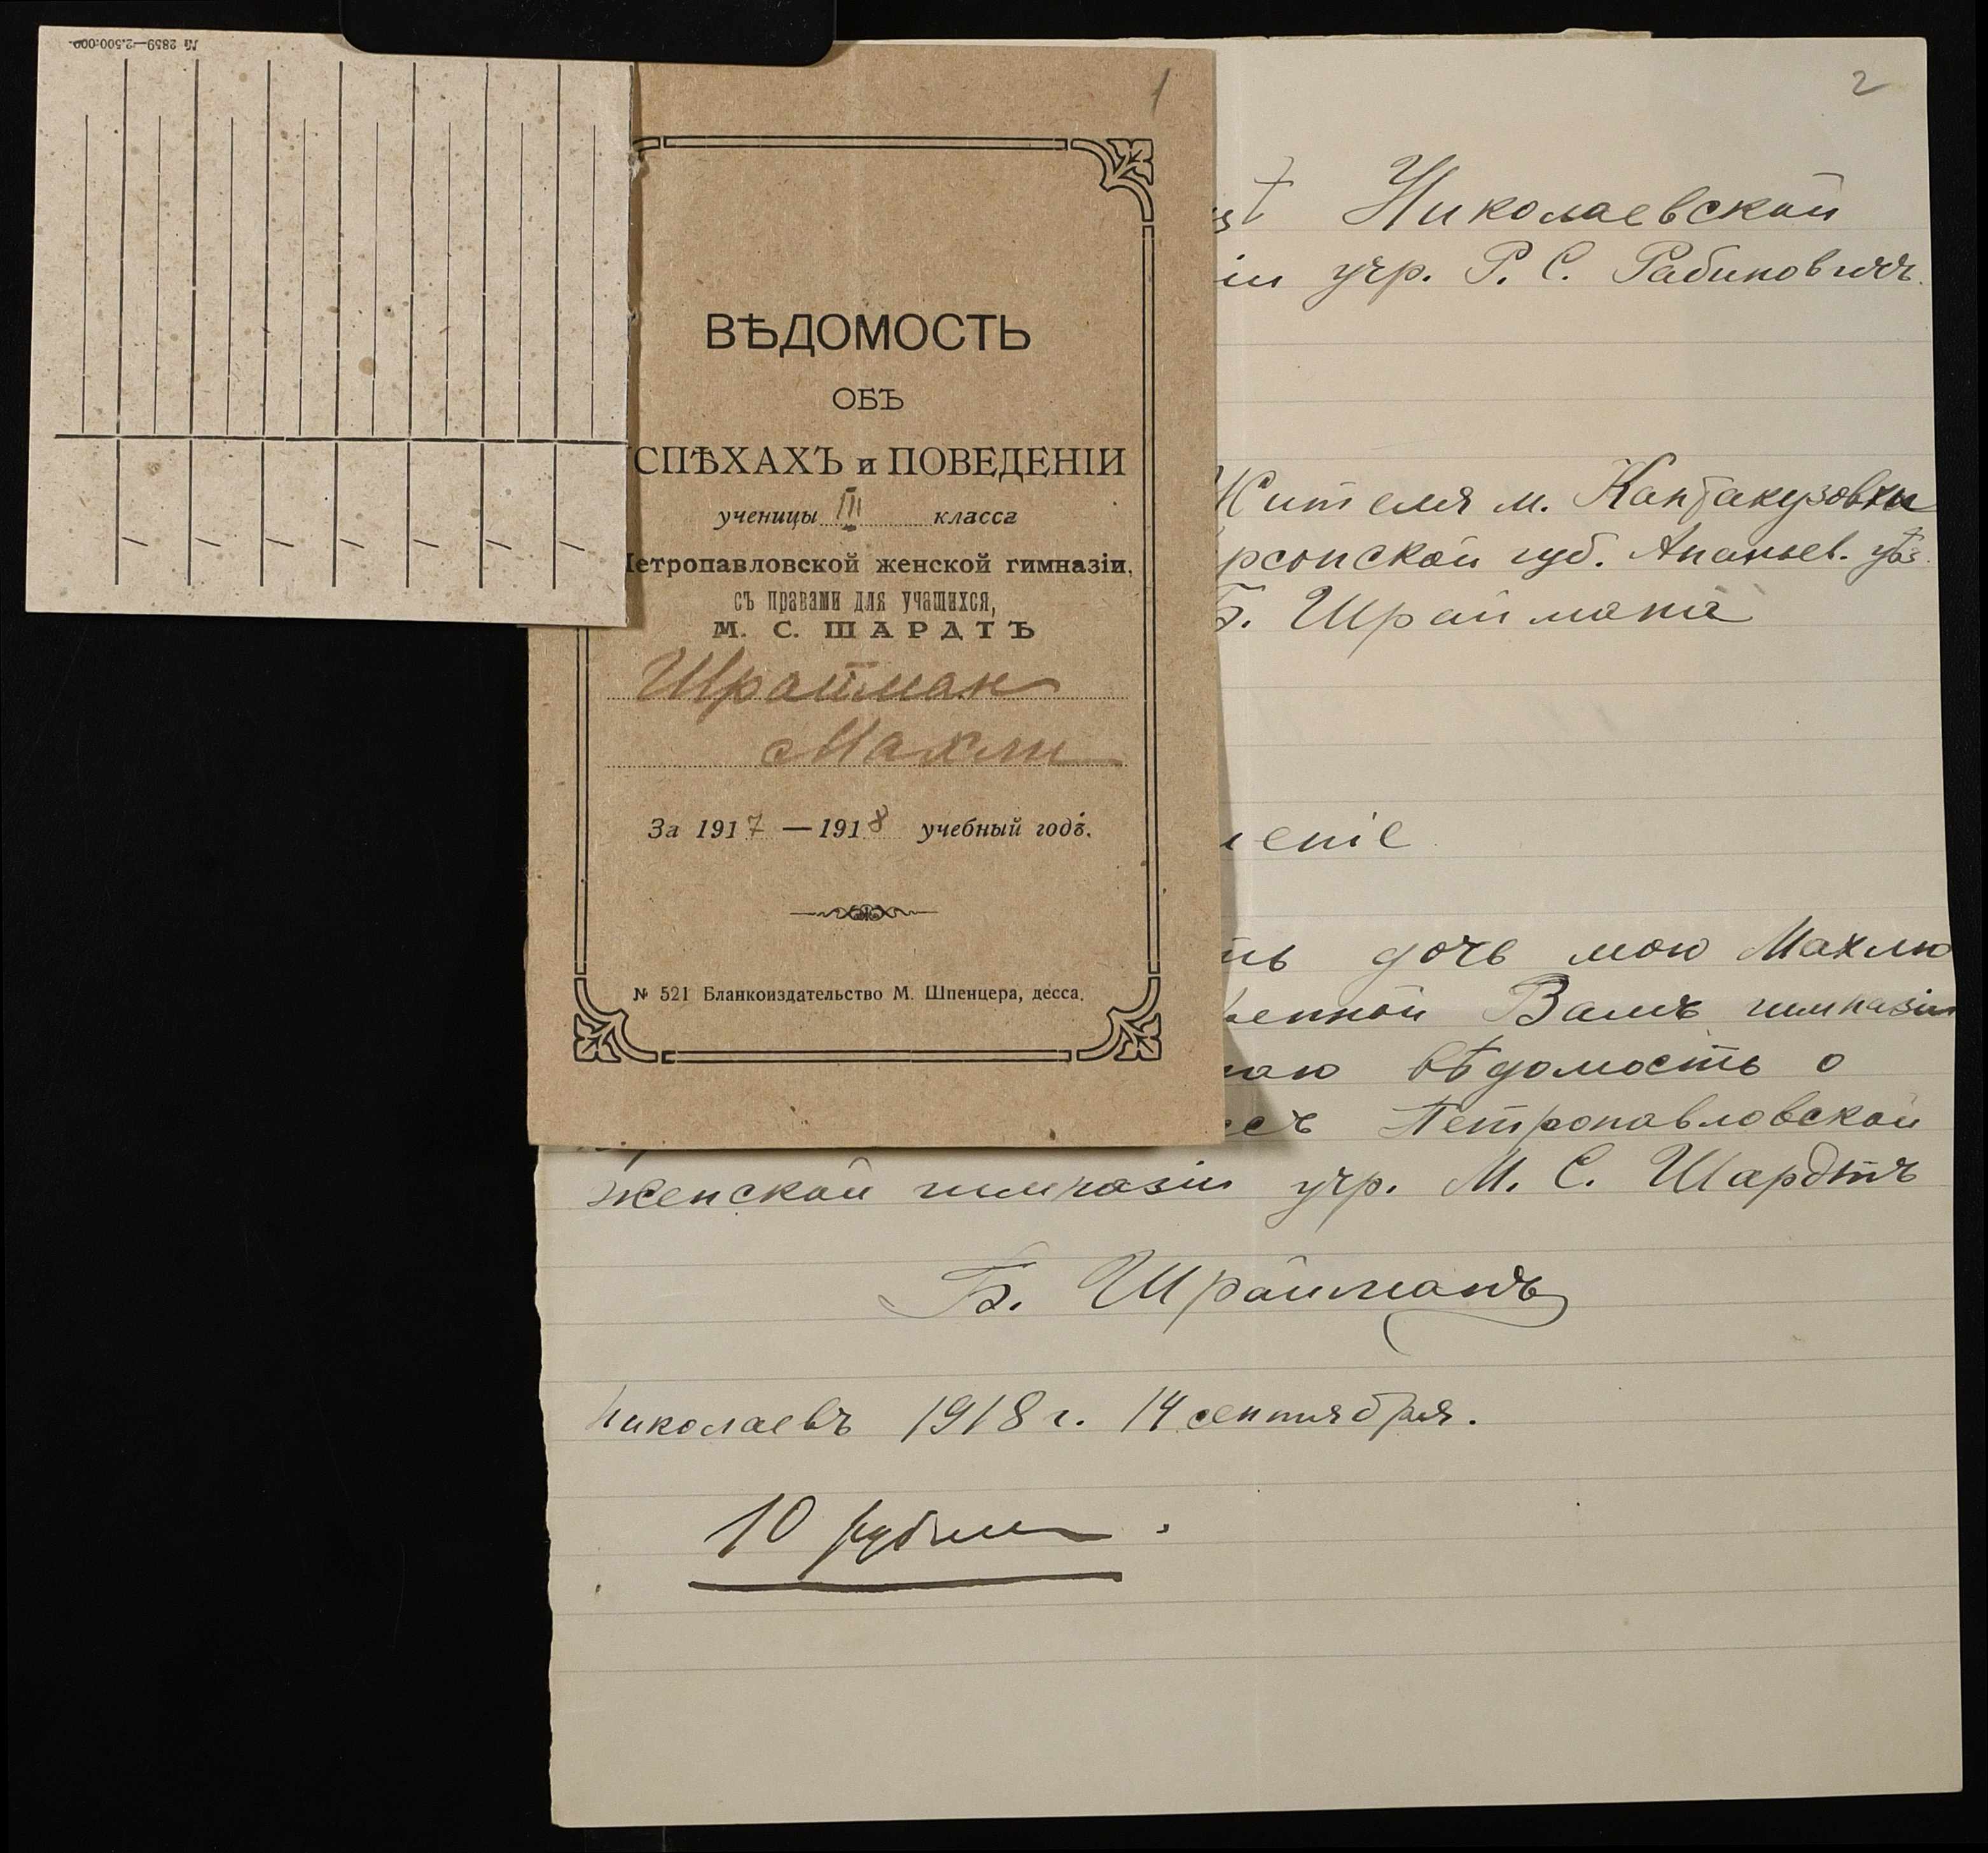 № 2859—2.500.000.
1
ВѢДОМОСТЬ
ОБЪ
СПѢХАХЪ и ПОВЕДЕНІИ
ученицы III класса
Петропавловской женской гимназіи,
съ правами для учащихся,
М. С. ШАРДТЪ
Шрайман
Махли
За 1917 — 1918 учебный годъ.
№ 521 Бланкоиздательство М. Шпенцера, десса.
2
Николаевской
іи учр. Р. С. Рабиновичъ.
Жителя м. Кантакузовки
рсонской губ. Ананьев. уѣз.
Б. Шраймана
еніе
ть дочь мою Махлю
венной Вамъ гимназіи
гаю вѣдомость о
ссъ Петропавловской
женской гимназіи учр. М. С. Шардтъ
Б. Шрайманъ
Николаевъ 1918 г. 14 сентября.
10 рублей.